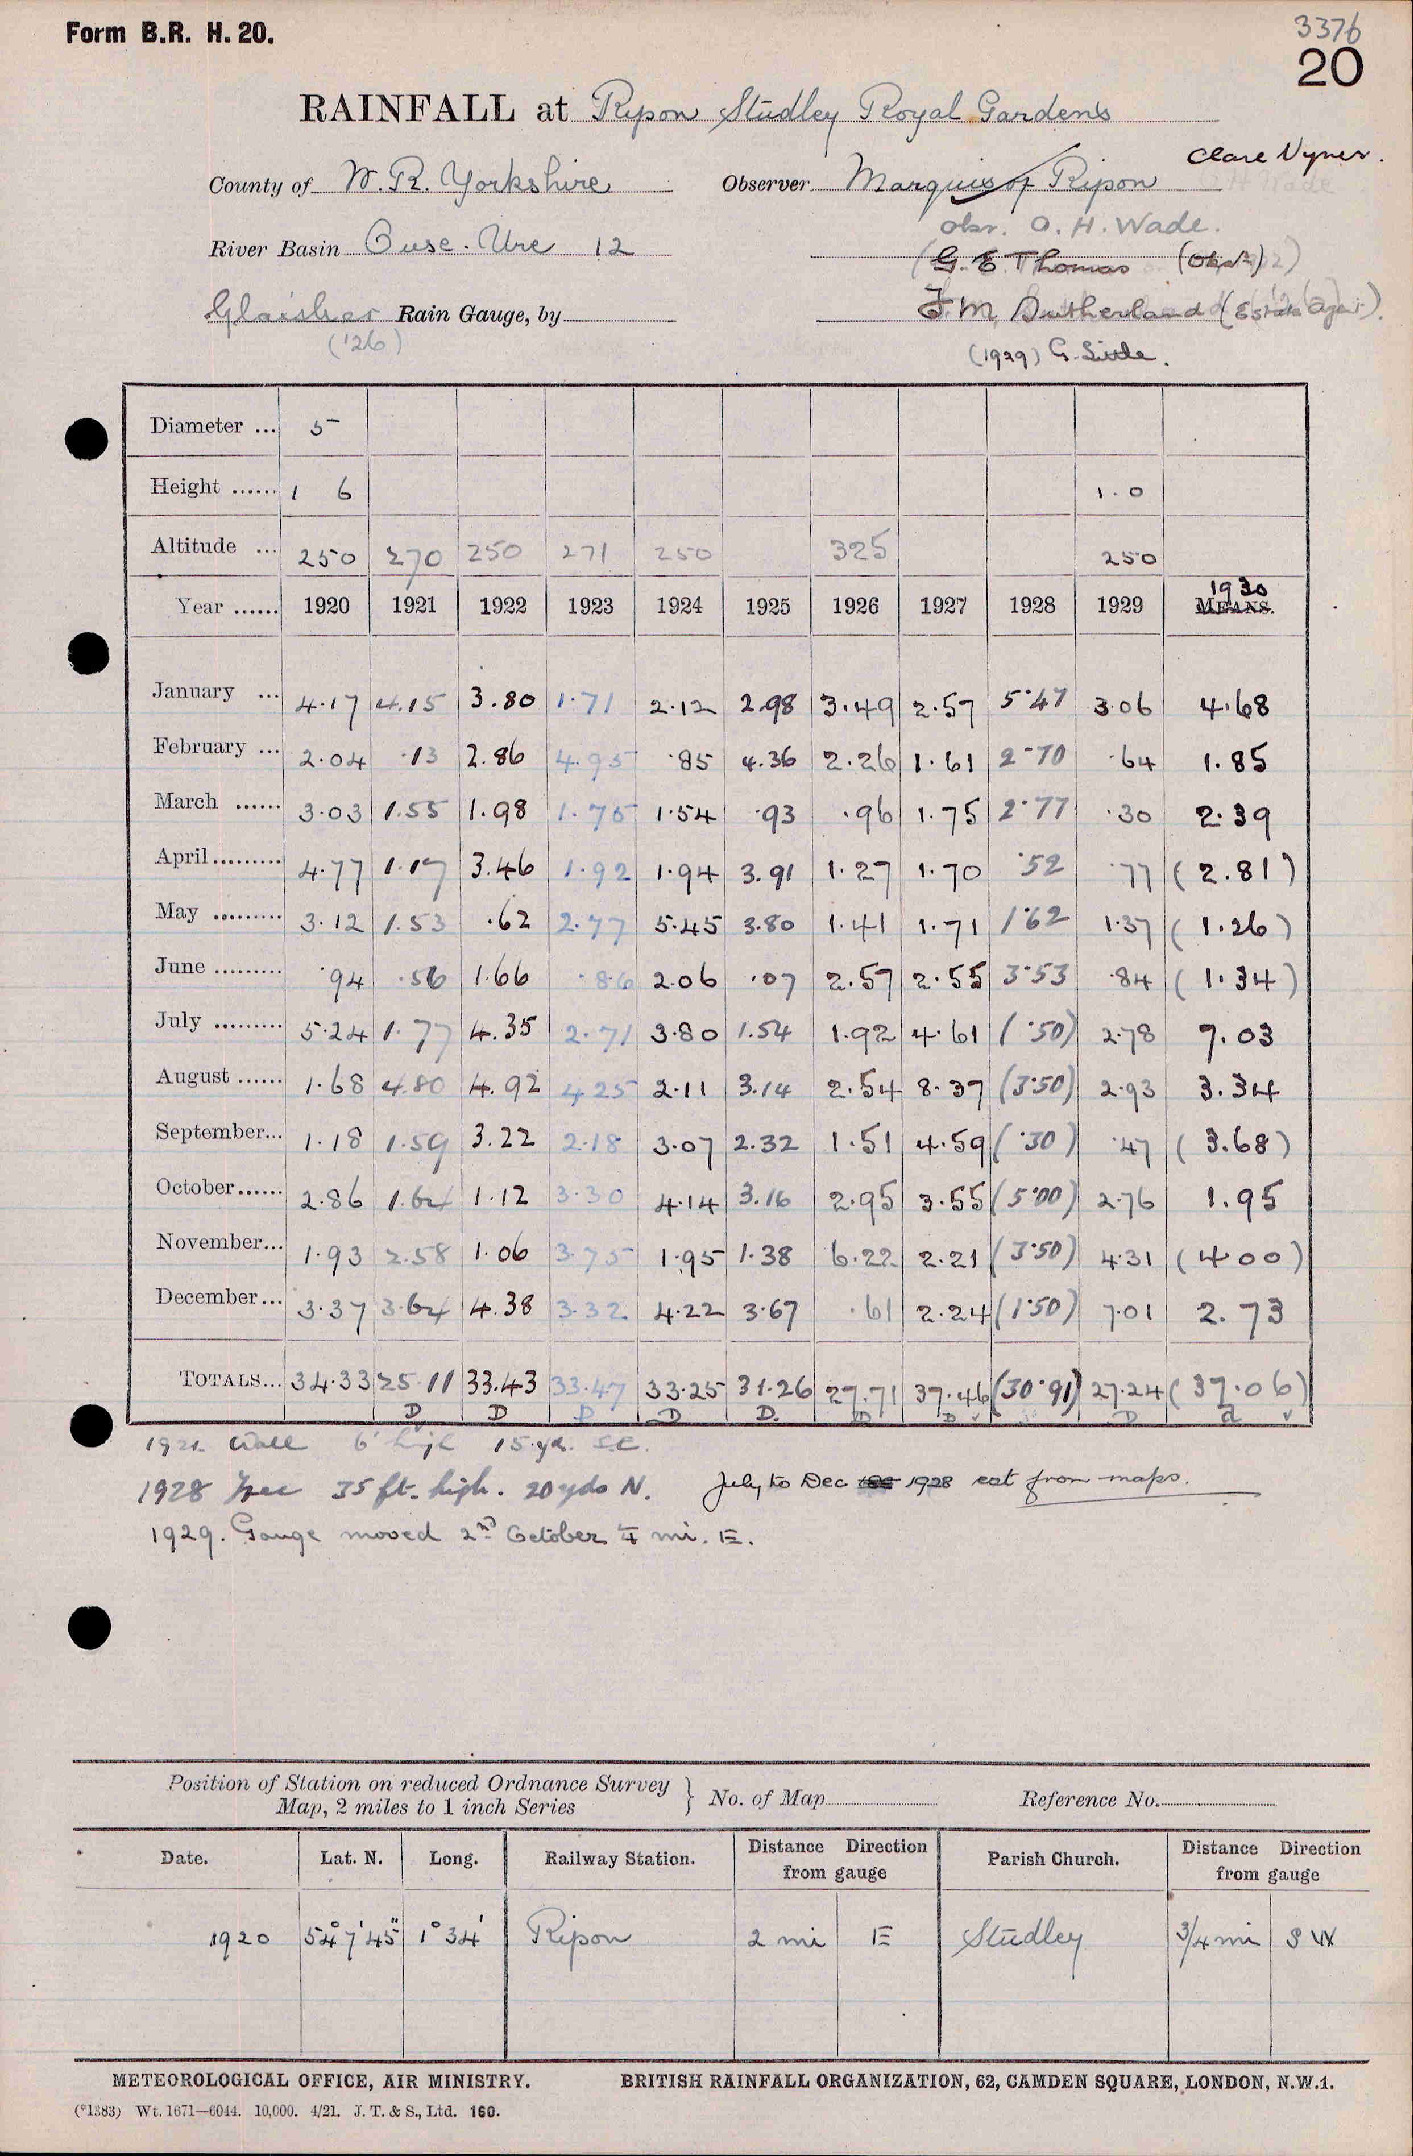 Form B.R. H. 20.
3376
20
RAINFALL at Ripon Studley Royal Gardens
Clare Vyner.
County of W. R. Yorkshire Observer Marquis of Ripon
obsr. A. H. Wade.
River Basin Ouse. Ure 12
G. E Thomas (Obsr)
Glaisher Rain Gauge, by
F. M. Sutherland (Estate Agent).
('26)
(1929) G. Little.
Diameter ... 5
Height ...... 1 6 1.0
Altitude ... 250 270 250 271 250 325 250
Year ...... 1920 1921 1922 1923 1924 1925 1926 1927 1928 1929 1930 MEANS.
January ... 4.17 4.15 3.80 1.71 2.12 2.98 3.49 2.57 5.47 3.06 4.68
February ... 2.04 .13 2.86 4.95 .85 4.36 2.26 1.61 2.70 .64 1.85
March ...... 3.03 1.55 1.98 1.75 1.54 .93 .96 1.75 2.77 .30 2.39
April......... 4.77 1.17 3.46 1.92 1.94 3.91 1.27 1.70 .52 .77 (2.81)
May ......... 3.12 1.53 .62 2.77 5.45 3.80 1.41 1.71 1.62 1.37 (1.26)
June ......... .94 .56 1.66 .86 2.06 .07 2.57 2.55 3.53 .84 (1.34)
July ......... 5.24 1.77 4.35 2.71 3.80 1.54 1.92 4.61 (.50) 2.78 7.03
August ...... 1.68 4.80 4.92 4.25 2.11 3.14 2.54 8.37 (3.50) 2.93 3.34
September... 1.18 1.59 3.22 2.18 3.07 2.32 1.51 4.59 (.30) .47 (3.68)
October...... 2.86 1.64 1.12 3.30 4.14 3.16 2.95 3.55 (5.00) 2.76 1.95
November... 1.93 2.58 1.06 3.75 1.95 1.38 6.22 2.21 (3.50) 4.31 (4.00)
December... 3.37 3.64 4.38 3.32 4.22 3.67 .61 2.24 (1.50) 7.01 2.73
TOTALS... 34.33 25.11 33.43 33.47 33.25 31.26 27.71 37.46 (30.91) 27.24 (37.06)
D D D D D. D D v D d v
1921 Wall 6' high 15 yd. S.E.
1928 Tree 35 ft. high. 20 yds N. July to Dec 1928 est from maps.
1929. Gauge moved 2nd October ¼ mi. E.
Position of Station on reduced Ordnance Survey
Map, 2 miles to 1 inch Series } No. of Map Reference No.
Date. Lat. N. Long. Railway Station. Distance Direction from gauge Parish Church. Distance Direction from gauge
1920 54° 7' 45" 1° 34' Ripon 2 mi E Studley 3/4 mi SW
METEOROLOGICAL OFFICE, AIR MINISTRY. BRITISH RAINFALL ORGANIZATION, 62, CAMDEN SQUARE, LONDON, N.W.1.
(*1383) Wt. 1671—6044. 10,000. 4/21. J. T. & S., Ltd. 160.